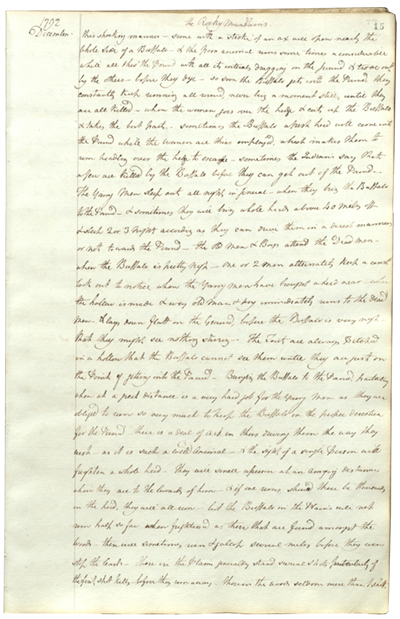 the Rocky Mountains
15
1792
December
this shocking manner - some with a stroke of an ax will open nearly the
whole side of a Buffalo - & the poor animal runs some times a considerable
while all thro' the Pound with all its entrails dragging on the ground & tore out
by the others - before they dye - so soon the Buffalo gets into the Pound they
constantly keep running all round, never stop a moment still, until they
are all killed - when the women goes over the hedge & cuts up the Buffalo
& takes the best parts - sometimes the Buffalo afresh herd will come into
the Pound while the women are thus employed, which makes them to
run headlong over the hedge to escape - sometimes the Indians says that
a few are killed by the Buffalo before they can get out of the Pound -
The Young Men sleep out all night in general - when they bring the Buffalo
to the Pound - & sometimes they will bring whole herds above 40 miles off
& sleep 2 or 3 nights according as they can drive them in a direct manner
or not towards the Pound - the old Men & Boys attend the Dead men -
when the Buffalo is pretty nigh - one or 2 men alternately keep a constant
look out to notice when the Young Men have brought a herd near - when
the hollow is made & every old Man & boy immediately runs to the dead
men & lays down flatt on the Ground, before the Buffalo is very nigh
that they might see nothing stirring - The Tents are always pitched
in a hollow that the Buffalo cannot see them until they are just on
the Brink of getting into the Pound - Bringing the Buffalo to the Pound, particularly
when at a great distance is a very hard job for the Young Men as they are
obliged to run so very much to keep the Buffalo in the proper direction
for the Pound there is a deal of art in thus driving them the way they
wish - as it is such a wild Animal - & the sight of a single person will
frighten a whole herd - They will smell a person at an amazing distance
when they are to the leewards of him - & if one runs, should there be thousands
in the herd, they will all run - but the Buffalo in the Plains will not
run half so far when frightened as those that are found amongst the
woods - these will sometimes, run & gallop several miles before they even
stop the least - Those in the Plains generally stand several shots (particularly if
the first shot kills) before they run away - those in the woods seldom more than 1 shot.